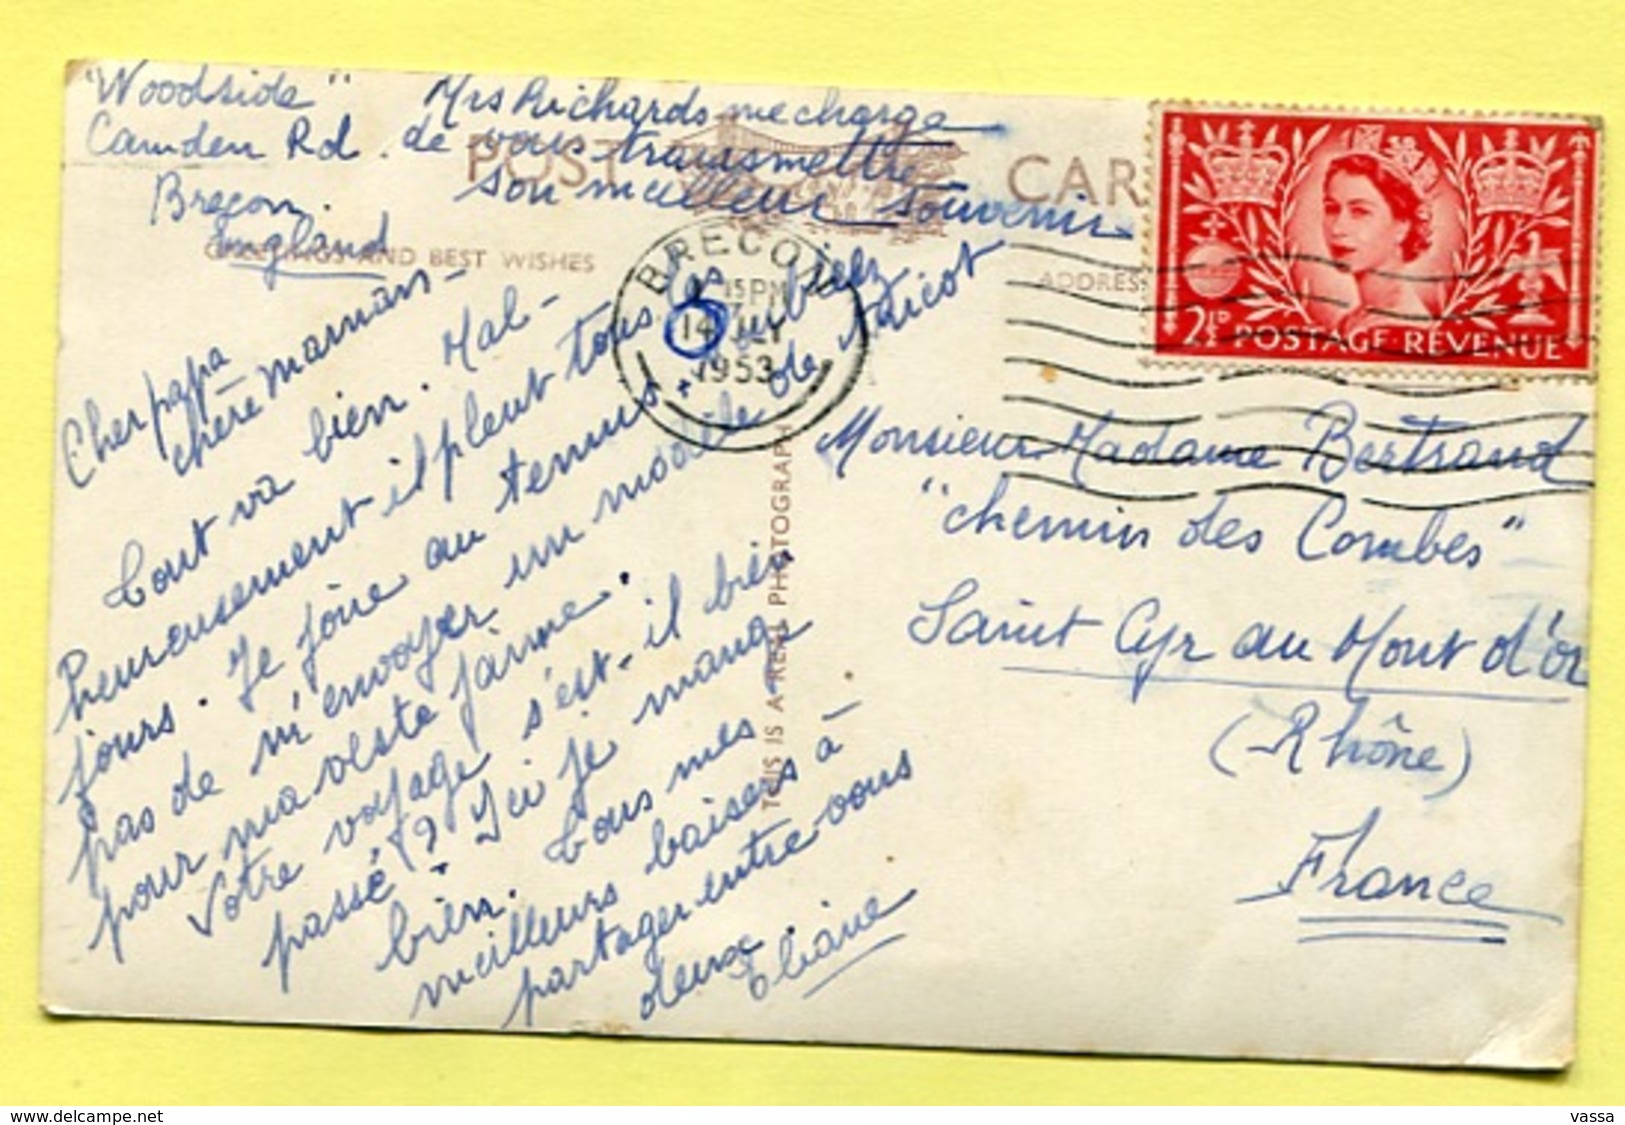 "Woodside"
Camden Rd.
Brecon.
England
Mrs Richards me charge
de vous transmettre
son meilleur souvenir
POST CAR
GREETINGS AND BEST WISHES
ADDRESS
BRECON
15 PM
14 JLY
1953
2½D POSTAGE REVENUE
Cher papa
chère maman -
Tout va bien. Mal-
heureusement il pleut tous les
jours. Je joue au tennis. N'oubliez
pas de m'envoyer un modèle de tricot
pour ma veste jaune.
Votre voyage s'est-il bien
passé? Ici je mange
bien. Tous mes
meilleurs baisers à
partager entre vous
deux.
Eliane
THIS IS A REAL PHOTOGRAPH
Monsieur Madame Bertrand
"chemin des Combes"
Saint Cyr au Mont d'Or
(Rhône)
France
www.delcampe.net
vassa